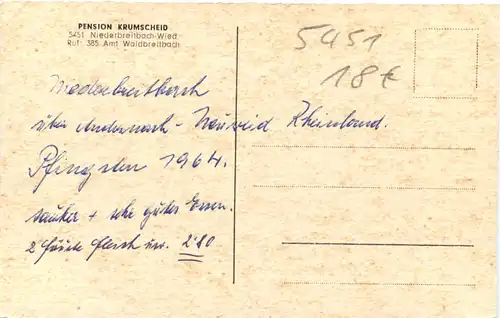 PENSION KRUMSCHEID
5451 Niederbreitbach-Wied
Ruf: 385 Amt Waldbreitbach
5451
18 €
Niederbreitbach
über Andernach - Neuwied Rheinland.
Pfingsten 1964.
sauber + sehr gutes Essen.
2 Fleisch 2'80